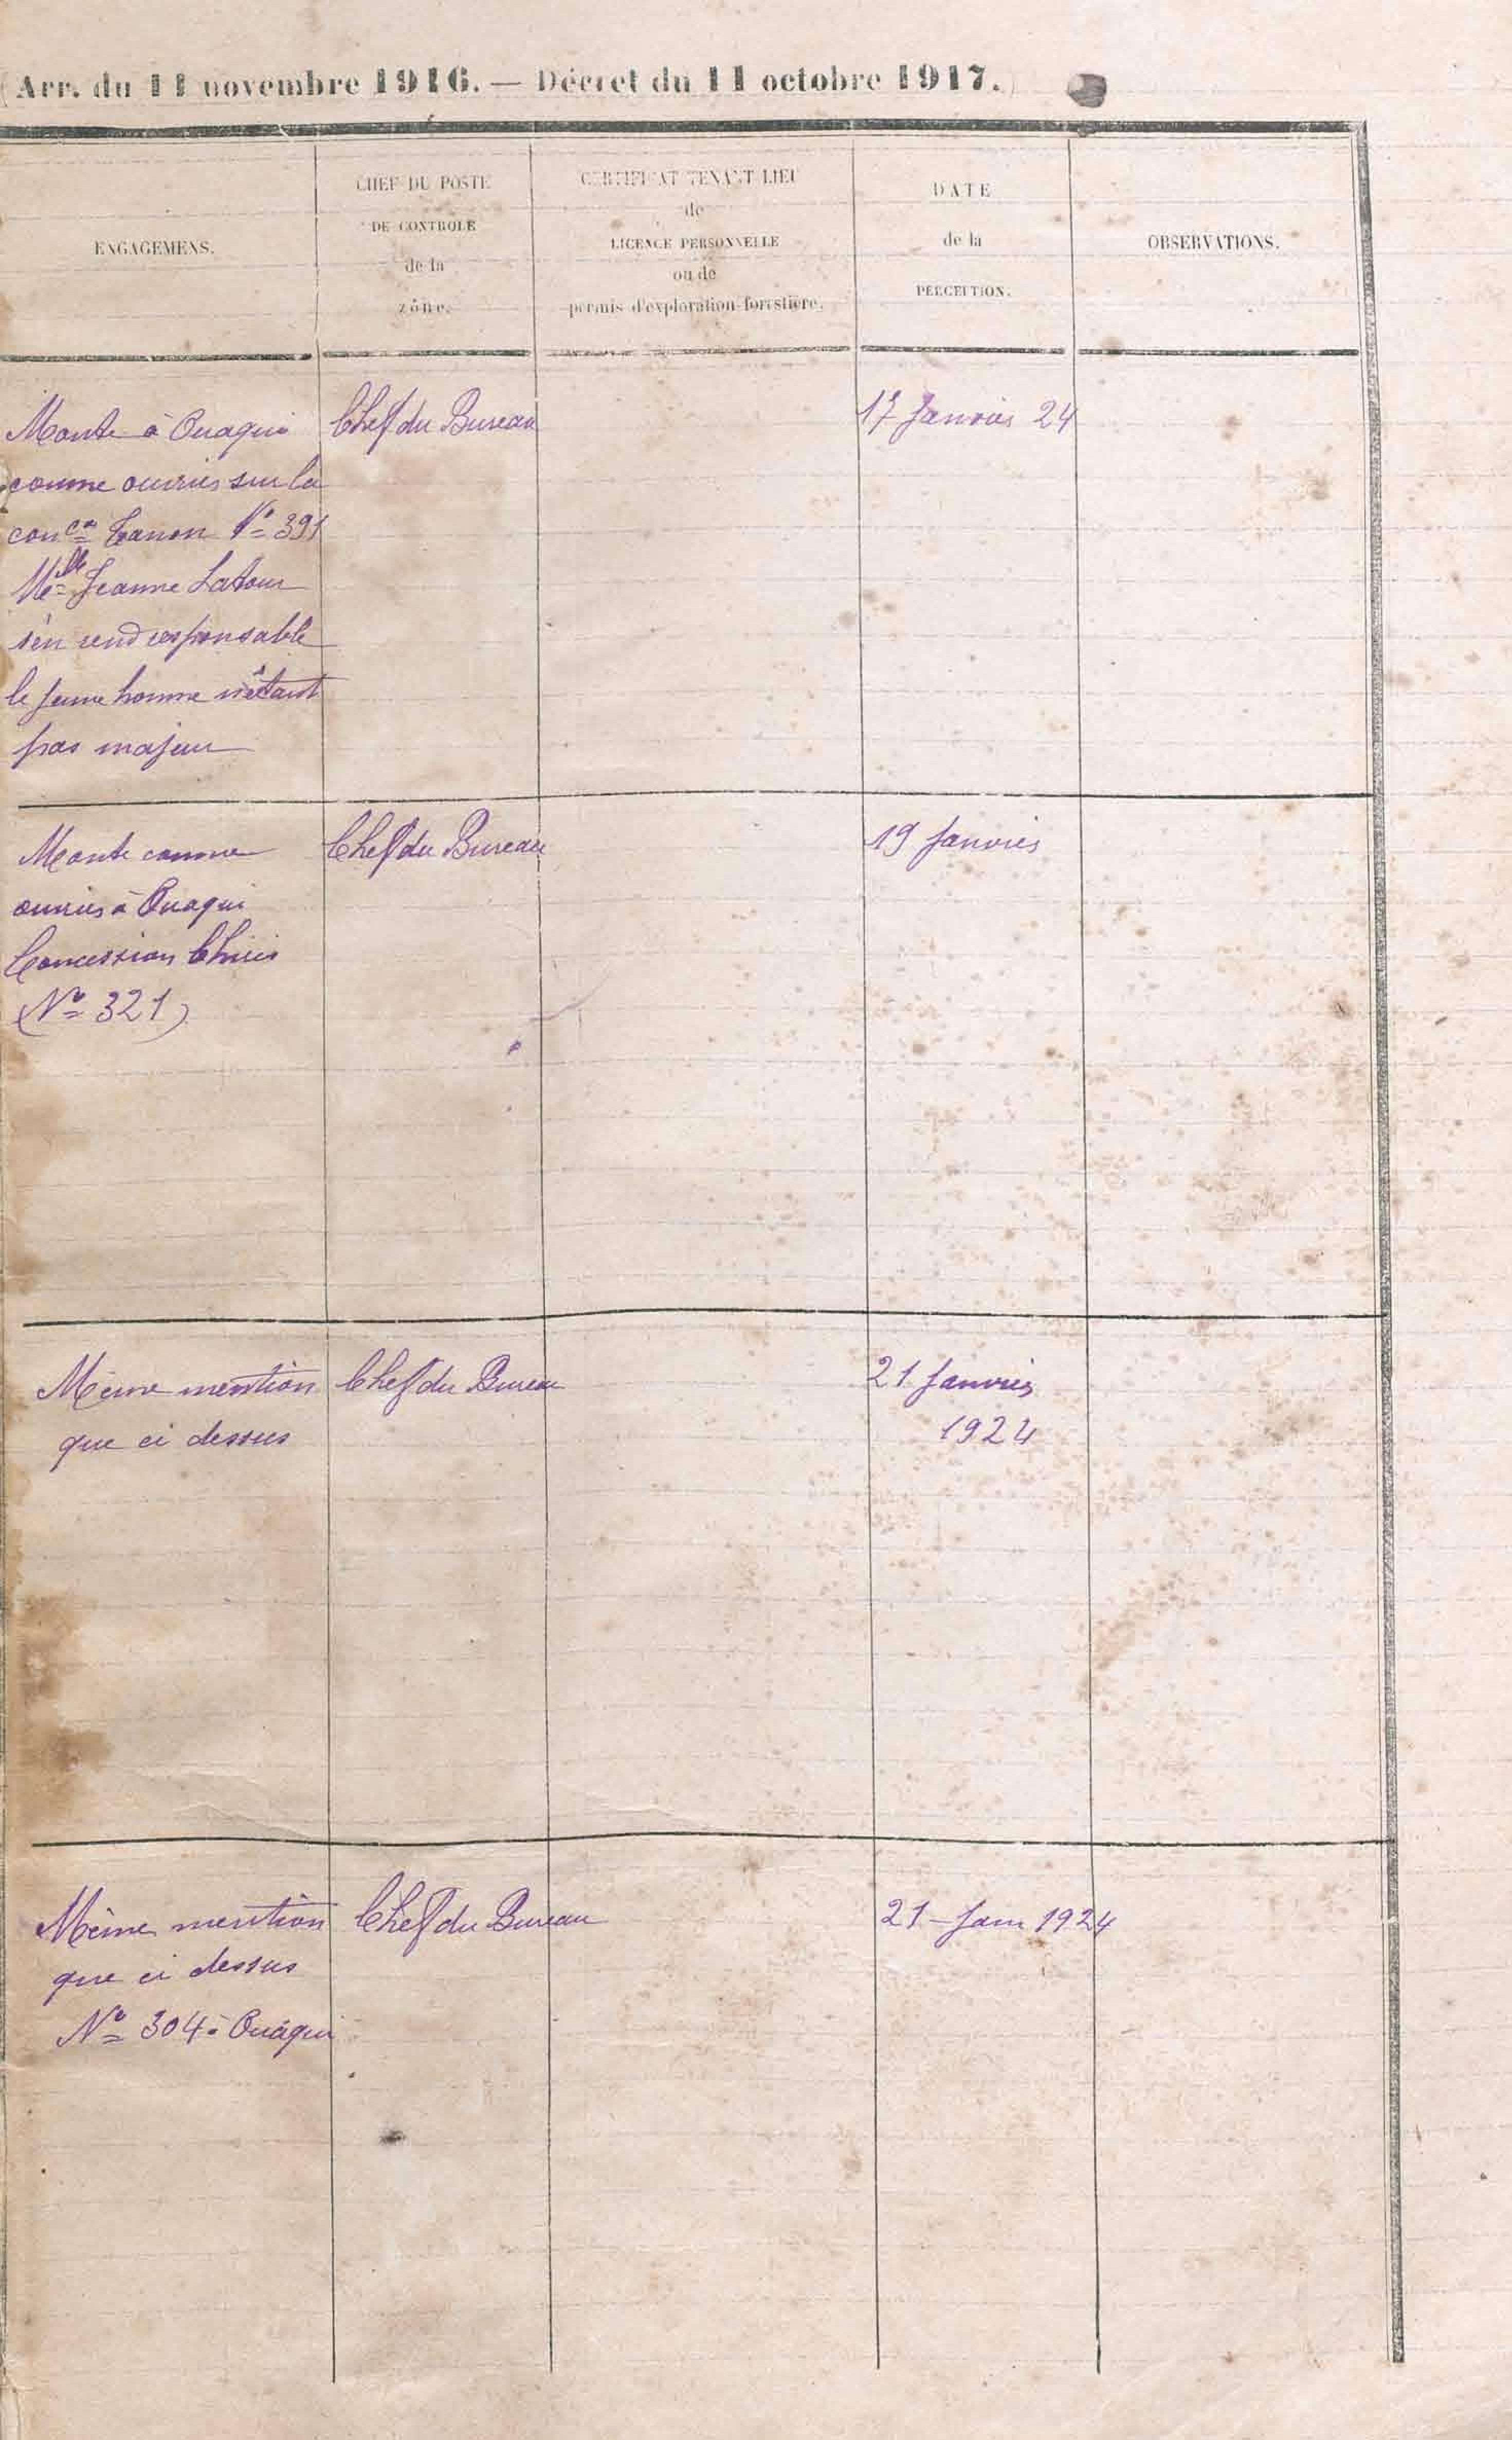 (Arr. du 11 novembre 1916. — Décret du 11 octobre 1917.)
ENGAGEMENS.
CHEF DU POSTE
DE CONTROLE
de la
zône.
CERTIFICAT TENANT LIEU
de
LICENCE PERSONNELLE
ou de
permis d'exploration forestière.
DATE
de la
PERCEPTION.
OBSERVATIONS.
Monte à Ouaqui
comme ouvrier sur la
con cn Tanon No 391
Melle Jeanne Latour
s'en rend responsable
le jeune homme n'étant
pas majeur
Chef du Bureau
17 Janvier 24
Monte comme
ouvrier à Ouaqui
Concession Chiris
(No 321)
Chef du Bureau
19 Janvier
Même mention
que ci dessus
Chef du Bureau
21 Janvier
1924
Même mention
que ci dessus
No 304 à Ouaqui
Chef du Bureau
21 - Janv 1924